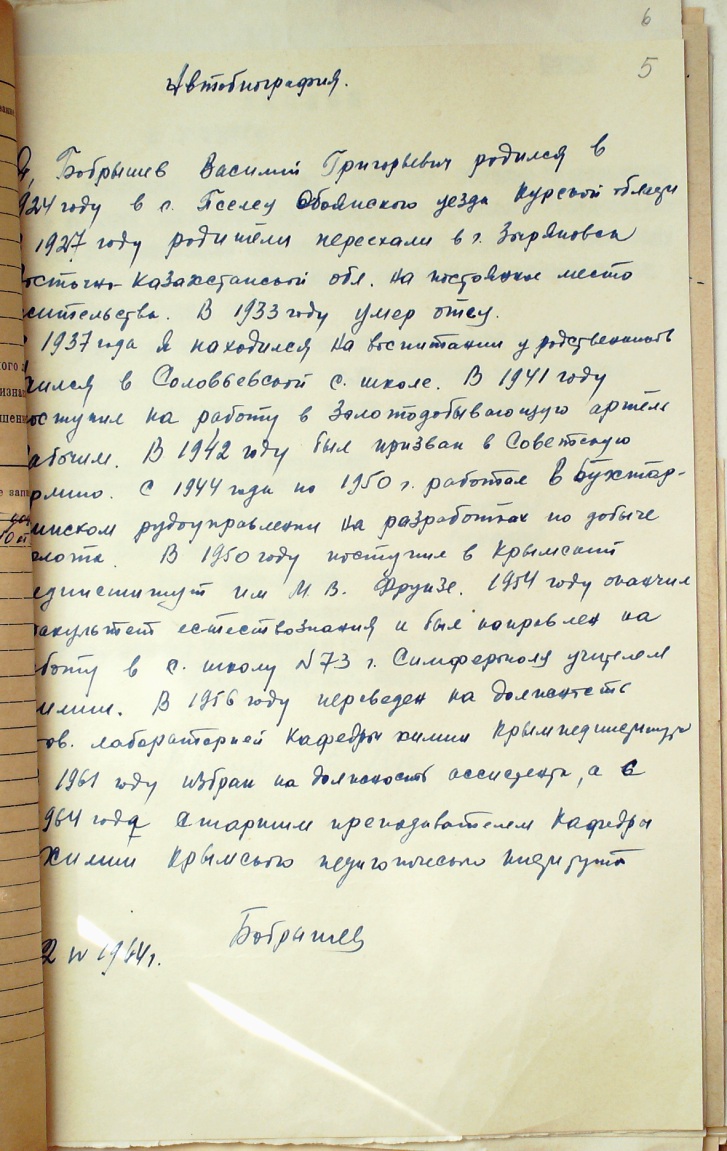 6
5
Автобиография.
Я, Бобрышев Василий Григорьевич родился в
924 году в с. Пселец Обоянского уезда Курской области
1927 году родители переехали в г. Зыряновск
осточно-Казахстанской обл. на постоянное место
жительства. В 1933 году умер отец.
1937 года я находился на воспитании у родственников
чился в Соловьевской с. школе. В 1941 году
оступил на работу в Золотодобывающую артель
абочим. В 1942 году был призван в Советскую
рмию. С 1944 года по 1950 г. работал в Бухтар-
минском рудоуправлении на разработках по добыче
олота. В 1950 году поступил в Крымский
единститут им М. В. Фрунзе. 1954 году окончил
акультет естествознания и был направлен на
боту в с. школу N 73 г. Симферополя учителем
имии. В 1956 году переведен на должность
ов. лабораторией Кафедры химии Крымпединститута
1961 году избран на должность ассистента, а с
964 года старшим преподавателем Кафедры
химии Крымского педагогического института
Бобрышев
2 IV 1964 г.